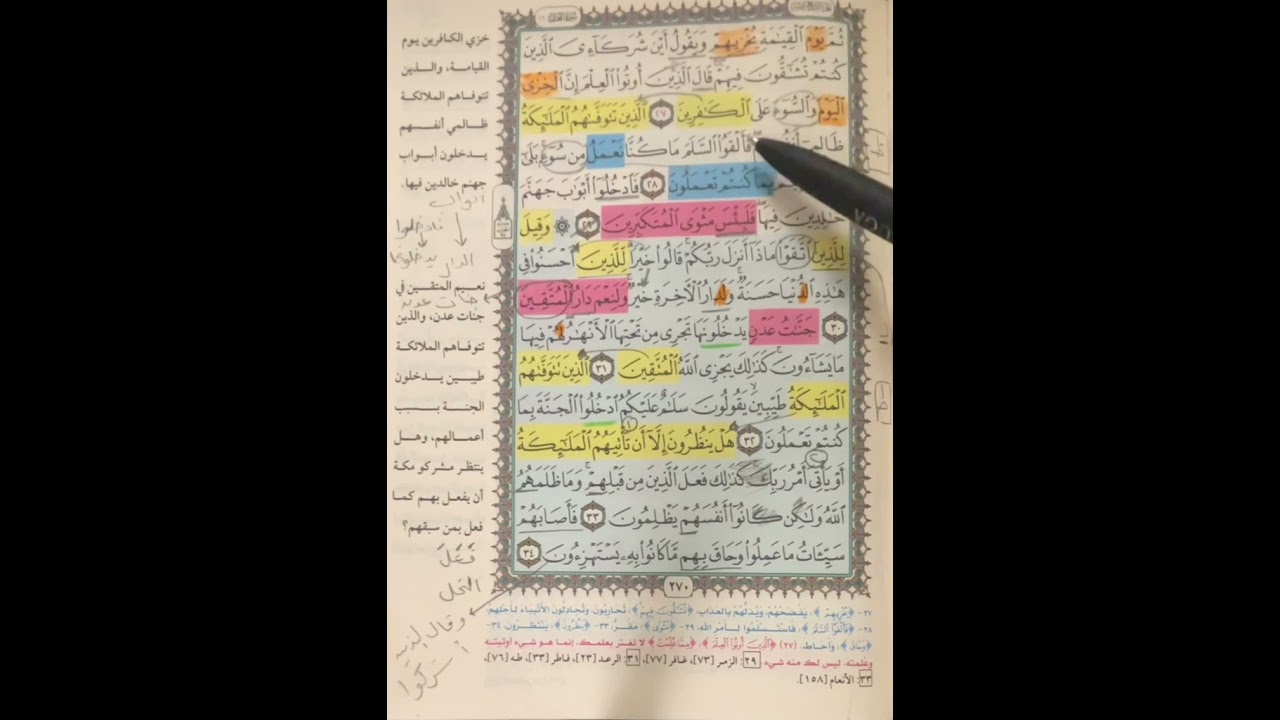 سورة النحل
ثُمَّ يَوْمَ ٱلْقِيَٰمَةِ يُخْزِيهِمْ وَيَقُولُ أَيْنَ شُرَكَآءِىَ ٱلَّذِينَ
كُنتُمْ تُشَٰٓقُّونَ فِيهِمْ قَالَ ٱلَّذِينَ أُوتُوا۟ ٱلْعِلْمَ إِنَّ ٱلْخِزْىَ
ٱلْيَوْمَ وَٱلسُّوٓءَ عَلَى ٱلْكَٰفِرِينَ ٢٧ ٱلَّذِينَ تَتَوَفَّىٰهُمُ ٱلْمَلَٰٓئِكَةُ
ظَالِمِىٓ فَأَلْقَوُا۟ ٱلسَّلَمَ مَا كُنَّا نَعْمَلُ مِن سُوٓءٍۭ بَلَىٰٓ
بِمَا كُنتُمْ تَعْمَلُونَ ٢٨ فَٱدْخُلُوٓا۟ أَبْوَٰبَ جَهَنَّمَ
خَٰلِدِينَ فِيهَا فَلَبِئْسَ مَثْوَى ٱلْمُتَكَبِّرِينَ ٢٩ ۞ وَقِيلَ
لِلَّذِينَ ٱتَّقَوْا۟ مَاذَآ أَنزَلَ رَبُّكُمْ قَالُوا۟ خَيْرًا لِّلَّذِينَ أَحْسَنُوا۟ فِى
هَٰذِهِ ٱلدُّنْيَا حَسَنَةٌ وَلَدَارُ ٱلْءَاخِرَةِ خَيْرٌ وَلَنِعْمَ دَارُ ٱلْمُتَّقِينَ
٣٠ جَنَّٰتُ عَدْنٍ يَدْخُلُونَهَا تَجْرِى مِن تَحْتِهَا ٱلْأَنْهَٰرُ لَهُمْ فِيهَا
مَا يَشَآءُونَ كَذَٰلِكَ يَجْزِى ٱللَّهُ ٱلْمُتَّقِينَ ٣١ ٱلَّذِينَ تَتَوَفَّىٰهُمُ
ٱلْمَلَٰٓئِكَةُ طَيِّبِينَ يَقُولُونَ سَلَٰمٌ عَلَيْكُمُ ٱدْخُلُوا۟ ٱلْجَنَّةَ بِمَا
كُنتُمْ تَعْمَلُونَ ٣٢ هَلْ يَنظُرُونَ إِلَّآ أَن تَأْتِيَهُمُ ٱلْمَلَٰٓئِكَةُ
أَوْ يَأْتِىَ أَمْرُ رَبِّكَ كَذَٰلِكَ فَعَلَ ٱلَّذِينَ مِن قَبْلِهِمْ وَمَا ظَلَمَهُمُ
ٱللَّهُ وَلَٰكِن كَانُوٓا۟ أَنفُسَهُمْ يَظْلِمُونَ ٣٣ فَأَصَابَهُمْ
سَيِّـَٔاتُ مَا عَمِلُوا۟ وَحَاقَ بِهِم مَّا كَانُوا۟ بِهِۦ يَسْتَهْزِءُونَ ٣٤
٢٧٠
خزي الكافرين يوم
القيامة، والذين
تتوفاهم الملائكة
ظالمي أنفسهم
يدخلون أبواب
جهنم خالدين فيها.
فادخلوا
يدخلونها
الدال
جنات عدن
نعيم المتقين في
جنات عدن، والذين
تتوفاهم الملائكة
طيبين يدخلون
الجنة بسبب
أعمالهم، وهل
ينتظر مشركو مكة
أن يفعل بهم كما
فعل بمن سبقهم؟
فعل
النحل
وقال الذين
أشركوا
٢٧- ﴿يُخْزِيهِمْ﴾: يفضحهم، ويذلهم بالعذاب، ﴿تُشَاقُّونَ فِيهِمْ﴾: تحاربون، وتجادلون الأنبياء لأجلهم،
٢٨- ﴿فَأَلْقَوُا السَّلَمَ﴾: فاستسلموا لأمر الله، ٢٩- ﴿مَثْوَى﴾: مقر، ٣٣- ﴿يَنظُرُونَ﴾: ينتظرون، ٣٤-
﴿وَحَاقَ﴾: وأحاط. (٢٧) ﴿الَّذِينَ أُوتُوا الْعِلْمَ﴾ لا تغتر بعلمك، إنما هو شيء أوتيته
وعلمته، ليس لك منه شيء. ٢٩: الزمر [٧٣]، غافر [٧٧]، ٣١: الرعد [٢٣]، فاطر [٣٣]، طه [٧٦]،
٣٣: الأنعام [١٥٨].